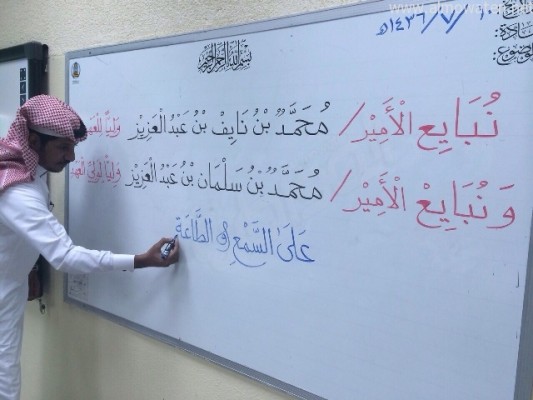 ١٤٣٦/٧/١٠هـ
بسم الله الرحمن الرحيم
نُبَايِع الْأَمِيْر/ مُحَمَّدُ بْنُ نَايِف بْنُ عَبْدُ الْعَزِيْز وَلِيًّا لِلْعَهْدِ
وَ نُبَايِعُ الْأَمِيْر/ مُحَمَّدُ بْنُ سَلْمَان بْنُ عَبْدُ الْعَزِيْز وَلِيًّا لِوَلِيِّ الْعَهْد
عَلَىٰ السَّمْعِ وَ الطَّاعَةِ